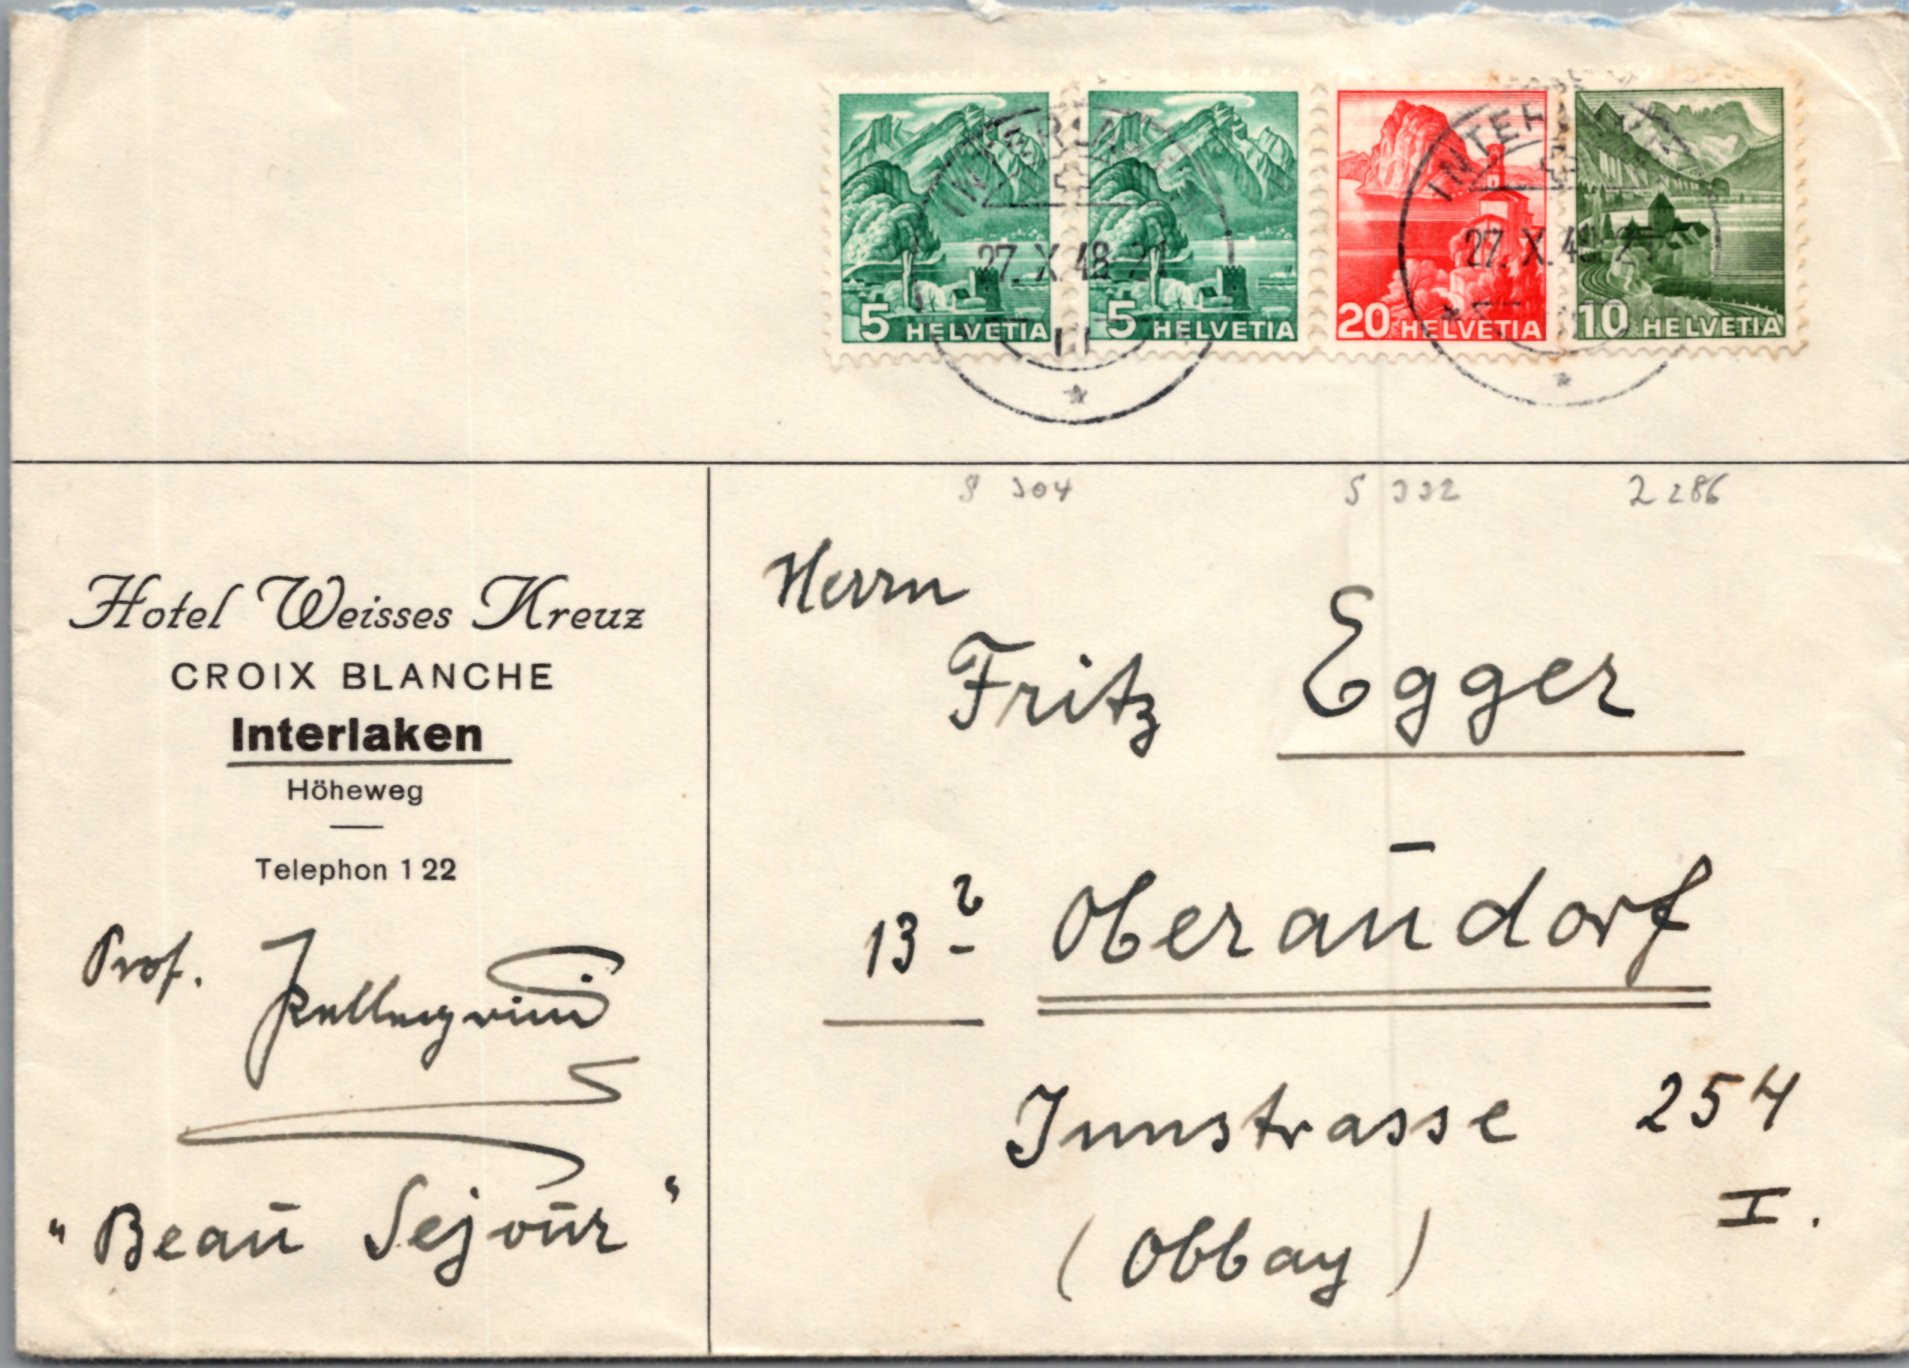 5 HELVETIA 5 HELVETIA 20 HELVETIA 10 HELVETIA
INTERLAKEN
27. X. 48
INTERLAKEN
27. X. 48
S 304 S 332 Z 286
Hotel Weisses Kreuz
CROIX BLANCHE
Interlaken
Höheweg
Telephon 1 22
Prof.
"Beaū Sejoūr"
Herrn
Fritz Egger
13 b Oberaūdorf
Innstrasse 254
I.
(Obbay)